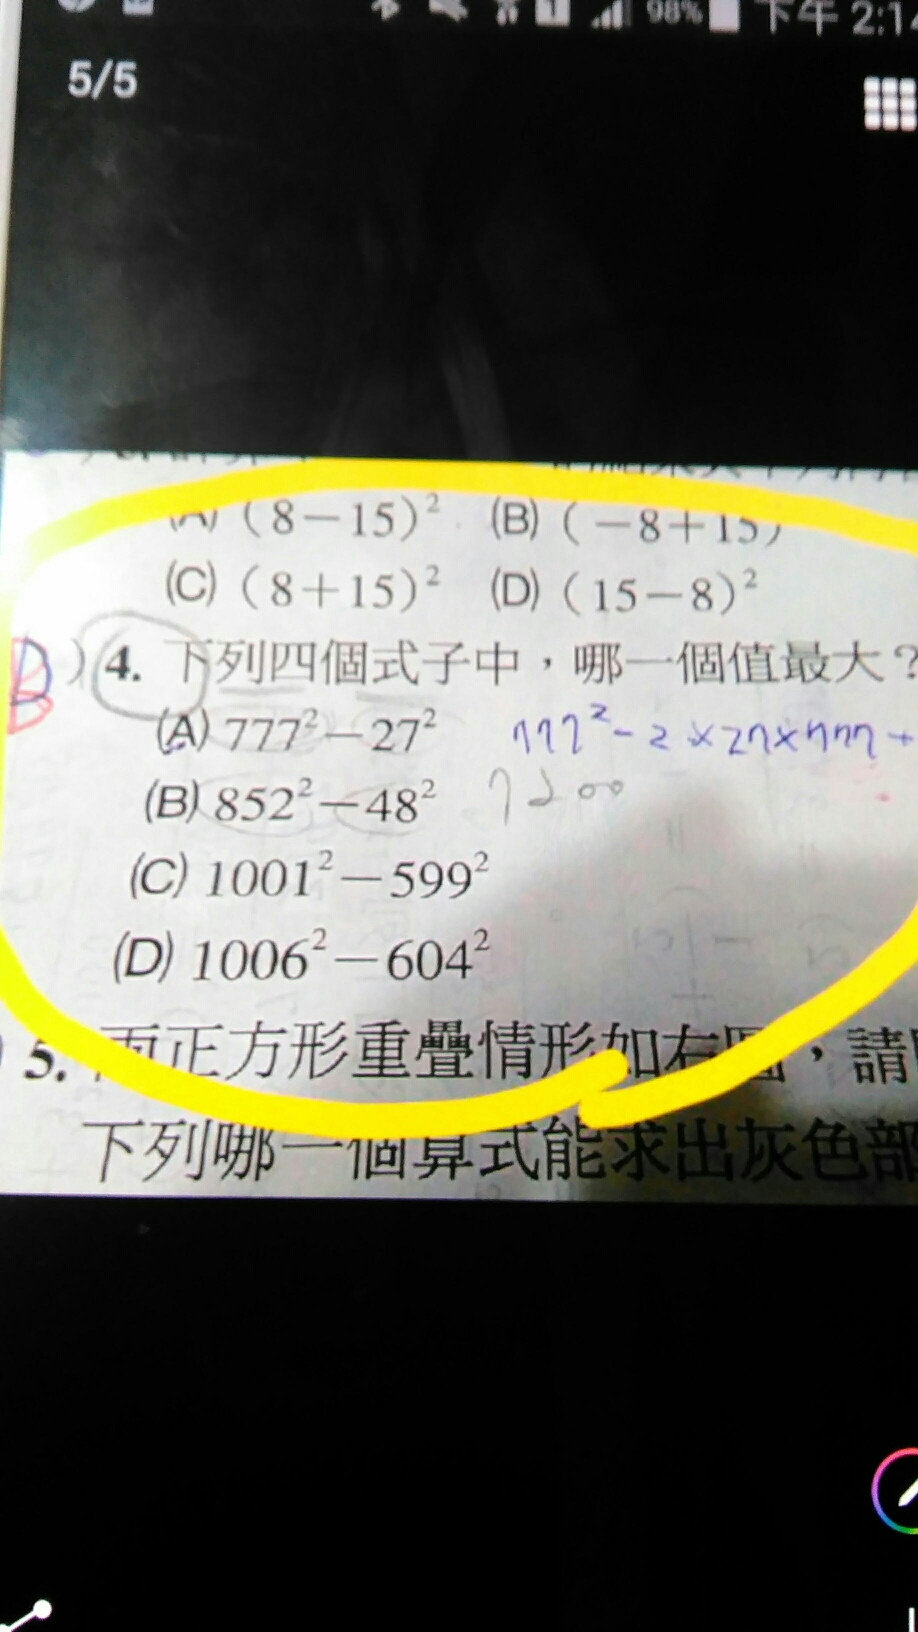 98% 下午 2:14
5/5
(A) (8－15)² (B) (－8＋15)
(C) (8＋15)² (D) (15－8)²
) 4. 下列四個式子中，哪一個值最大？
(A) 777²－27² 777²－2×27×777＋
(B) 852²－48² 7200
(C) 1001²－599²
(D) 1006²－604²
5. 兩正方形重疊情形如右圖，請
下列哪一個算式能求出灰色部